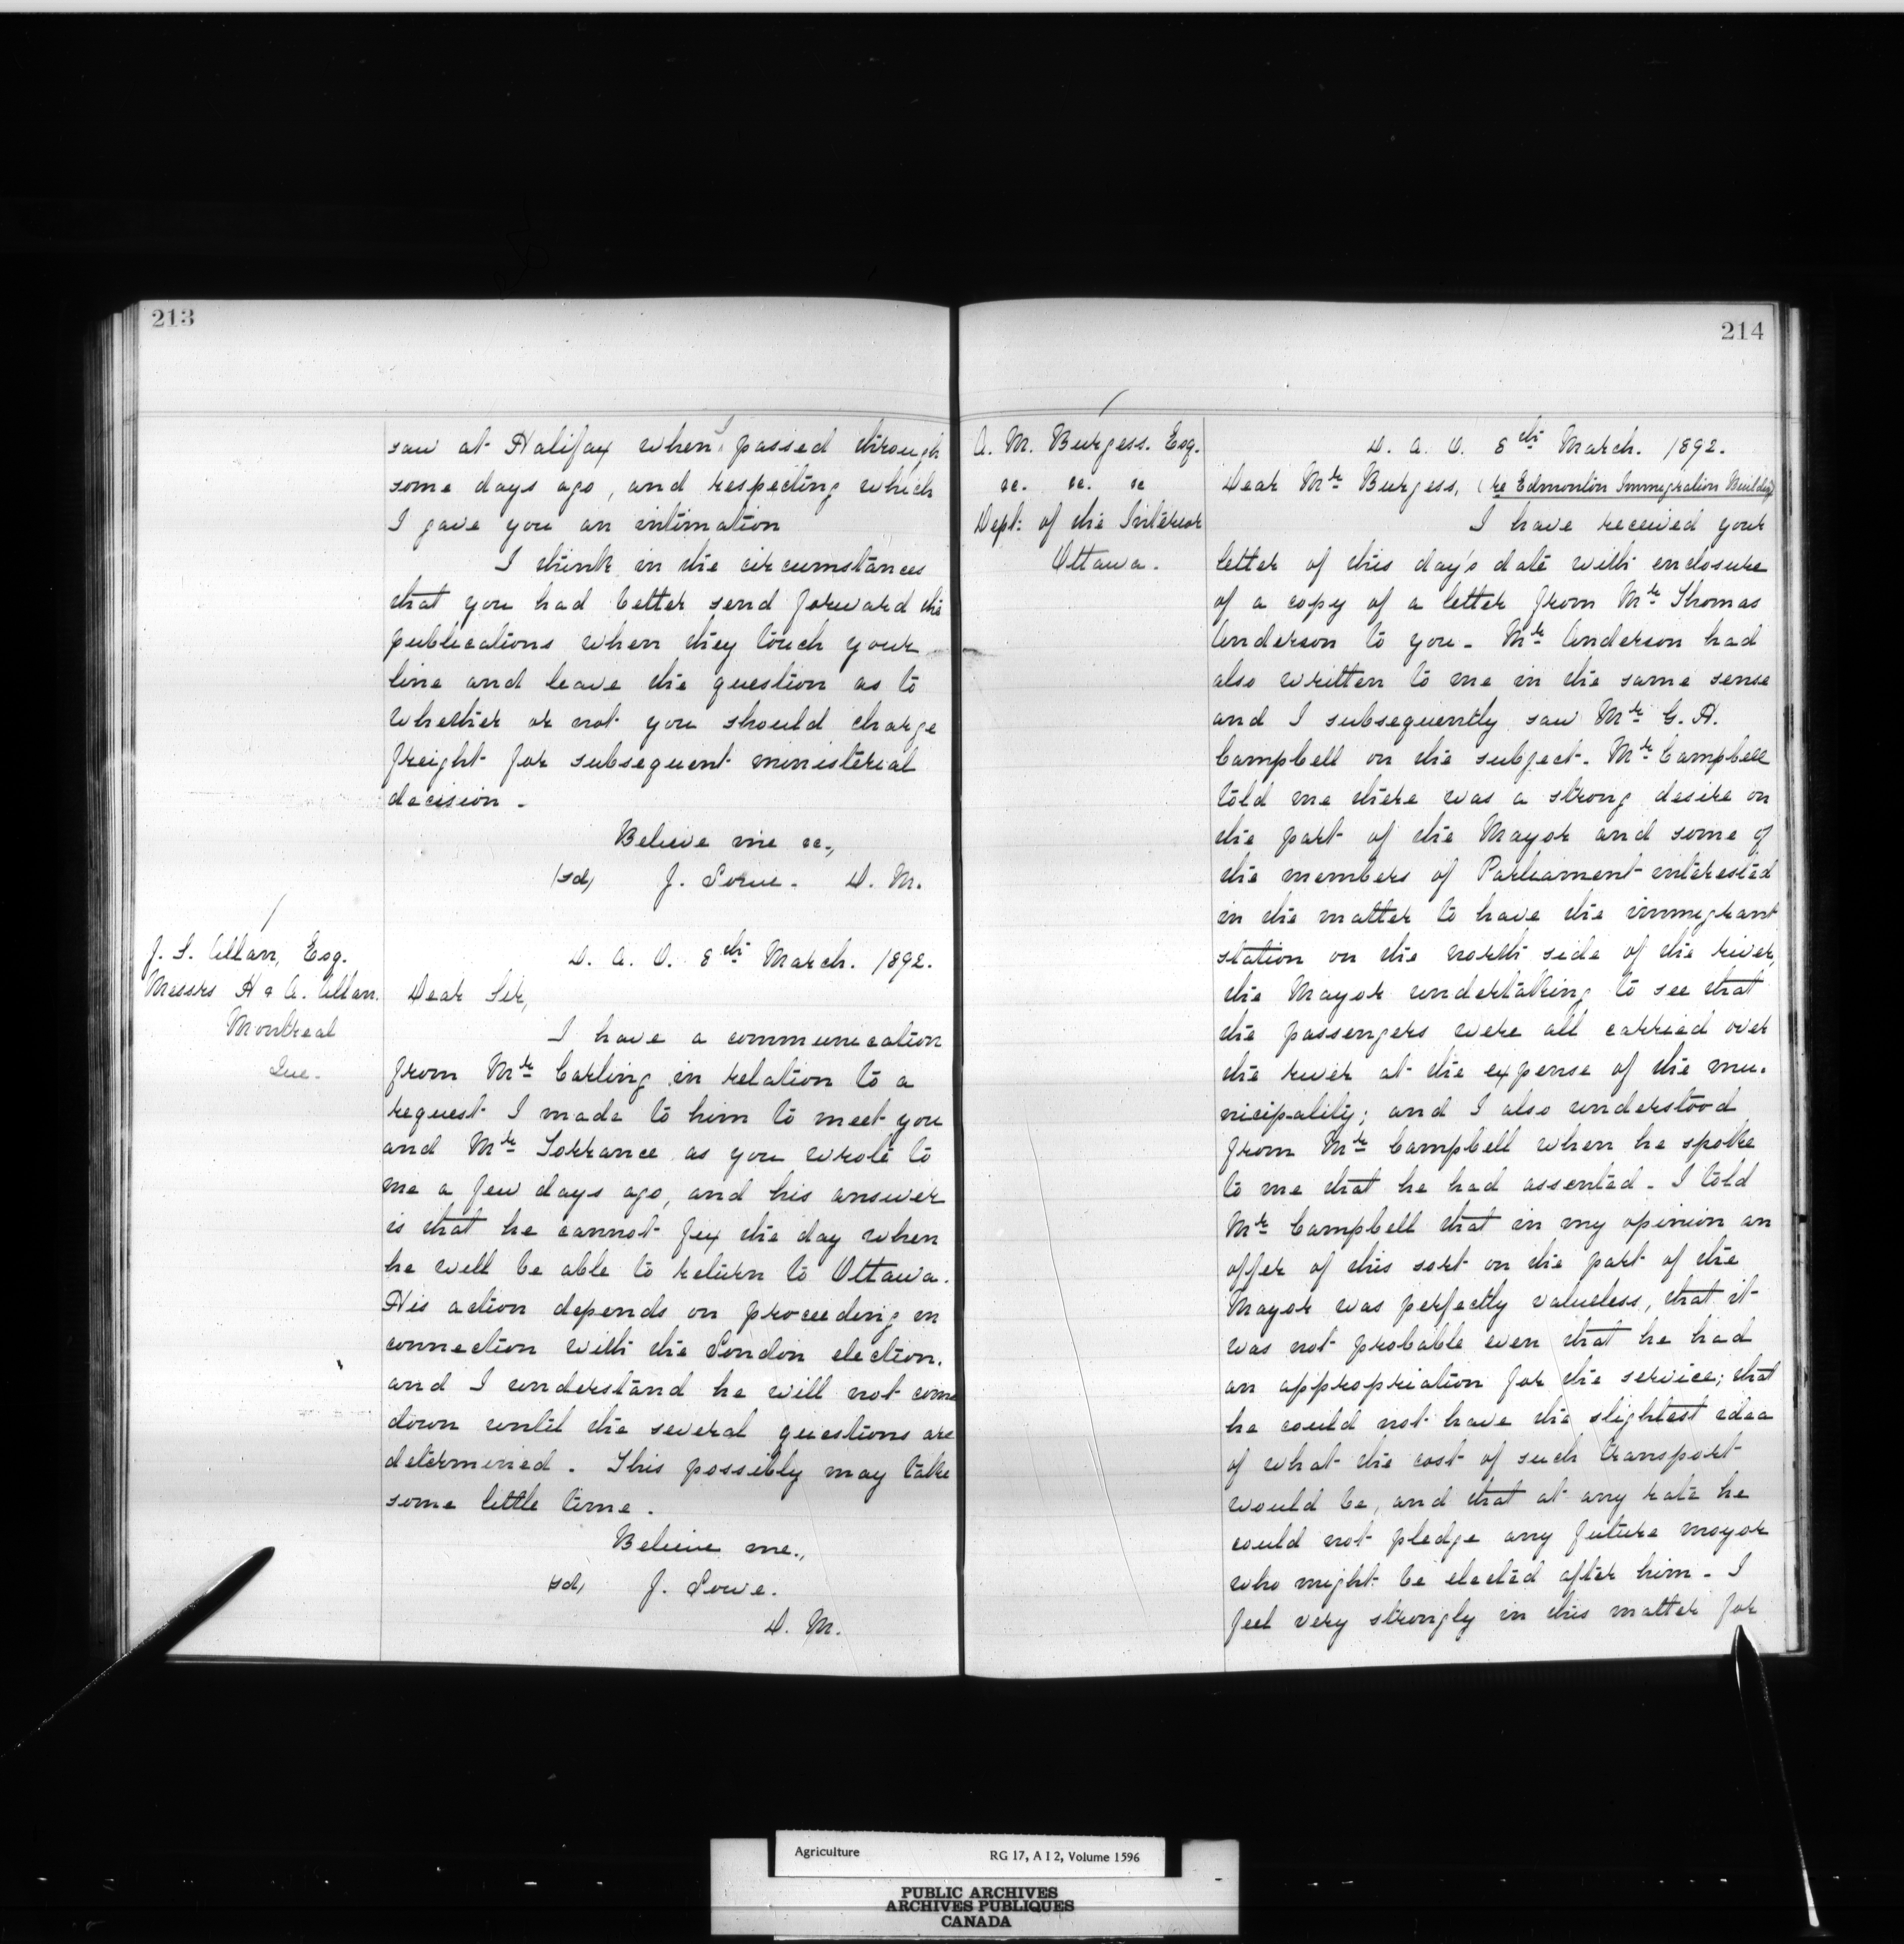 213
saw at Halifax when I passed through
some days ago, and respecting which
I gave you an intimation
I think in the circumstances
that you had better send forward the
publications when they touch your
line and leave the question as to
whether or not you should charge
freight for subsequent ministerial
decision -
Believe me &c.,
(sd) J. Lowe. D. M.
J. S. Allan, Esq.
Messrs H & A. Allan.
Montreal
Que.
D. A. O. 8th March. 1892.
Dear Sir,
I have a communication
from Mr Carling in relation to a
request I made to him to meet you
and Mr Torrance as you wrote to
me a few days ago, and his answer
is that he cannot fix the day when
he will be able to return to Ottawa.
His action depends on proceeding in
connection with the London election.
and I understand he will not come
down until the several questions are
determined. This possibly may take
some little time.
Believe me.,
(sd) J. Lowe.
D. M.
214
A. M. Burgess. Esq.
&c. &c. &c
Dept: of the Interior
Ottawa.
D. A. O. 8th March. 1892.
Dear Mr Burgess, (re Edmonton Immigration Building)
I have received your
letter of this day's date with enclosure
of a copy of a letter from Mr Thomas
Anderson to you - Mr Anderson had
also written to me in the same sense
and I subsequently saw Mr G. H.
Campbell on the subject. Mr Campbell
told me there was a strong desire on
the part of the Mayor and some of
the members of Parliament interested
in the matter to have the immigrant
station on the north side of the river,
the Mayor undertaking to see that
the passengers were all carried over
the river at the expense of the mu-
nicipality; and I also understood
from Mr Campbell when he spoke
to me that he had assented - I told
Mr Campbell that in my opinion an
offer of this sort on the part of the
Mayor was perfectly valueless, that it
was not probable even that he had
an appropriation for the service; that
he could not have the slightest idea
of what the cost of such transport
would be, and that at any rate he
could not pledge any future mayor
who might be elected after him - I
feel very strongly in this matter for
Agriculture RG 17, A I 2, Volume 1596
PUBLIC ARCHIVES
ARCHIVES PUBLIQUES
CANADA